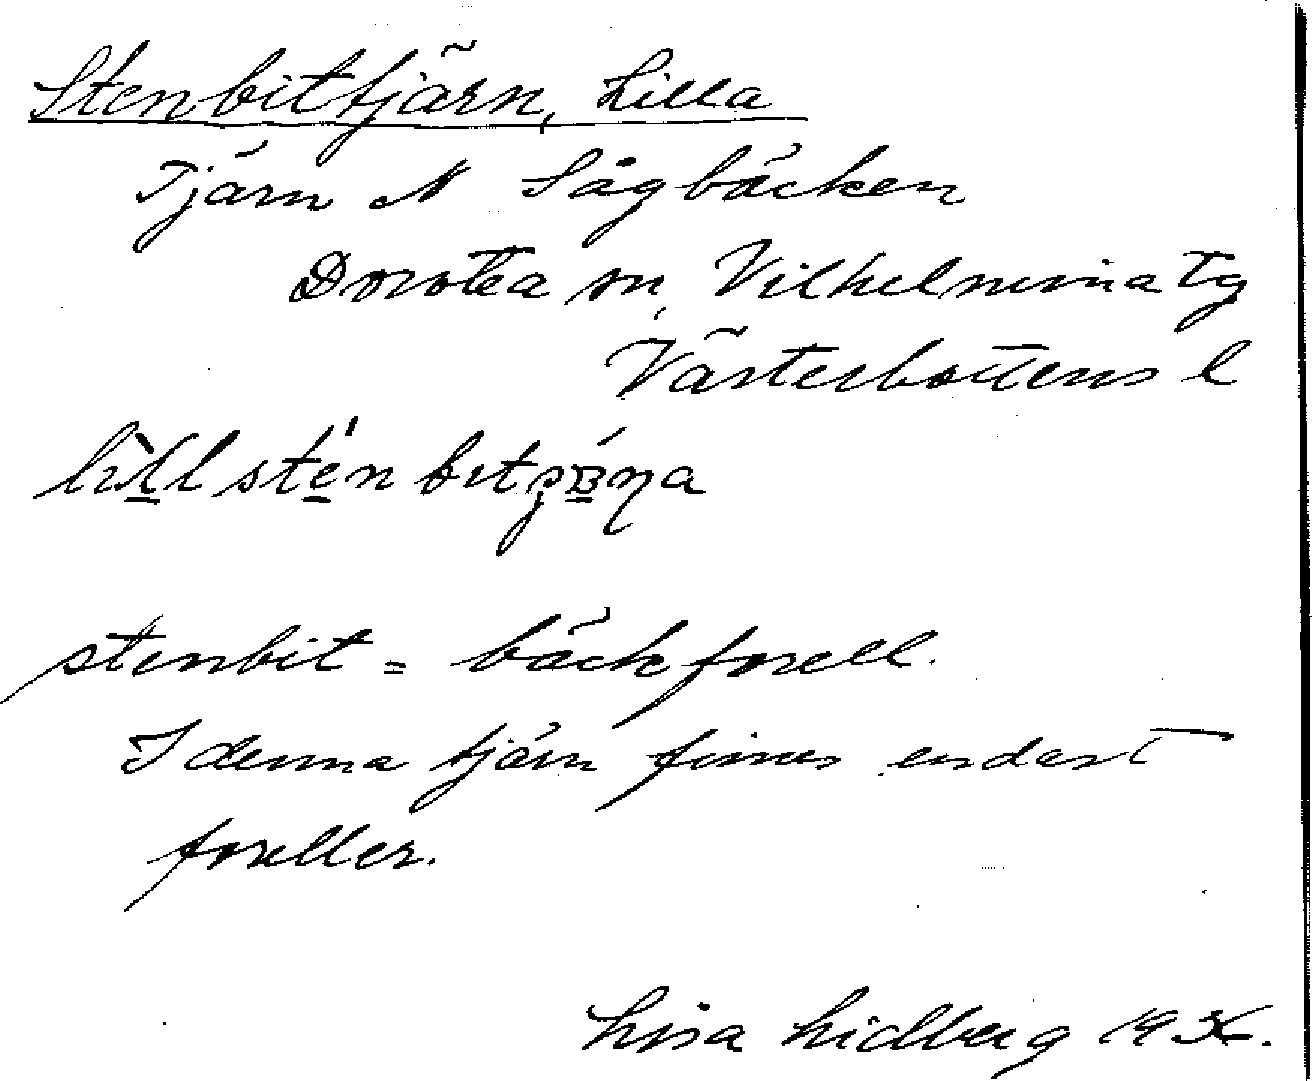 Stenbittjärn, Lilla
Tjärn N Sågbäcken
Dorotea sn, Vilhelmina tg
Västerbottens l
stenbit = bäckforell.
I denna tjärn finnes endast
foreller.
Lisa Lidberg